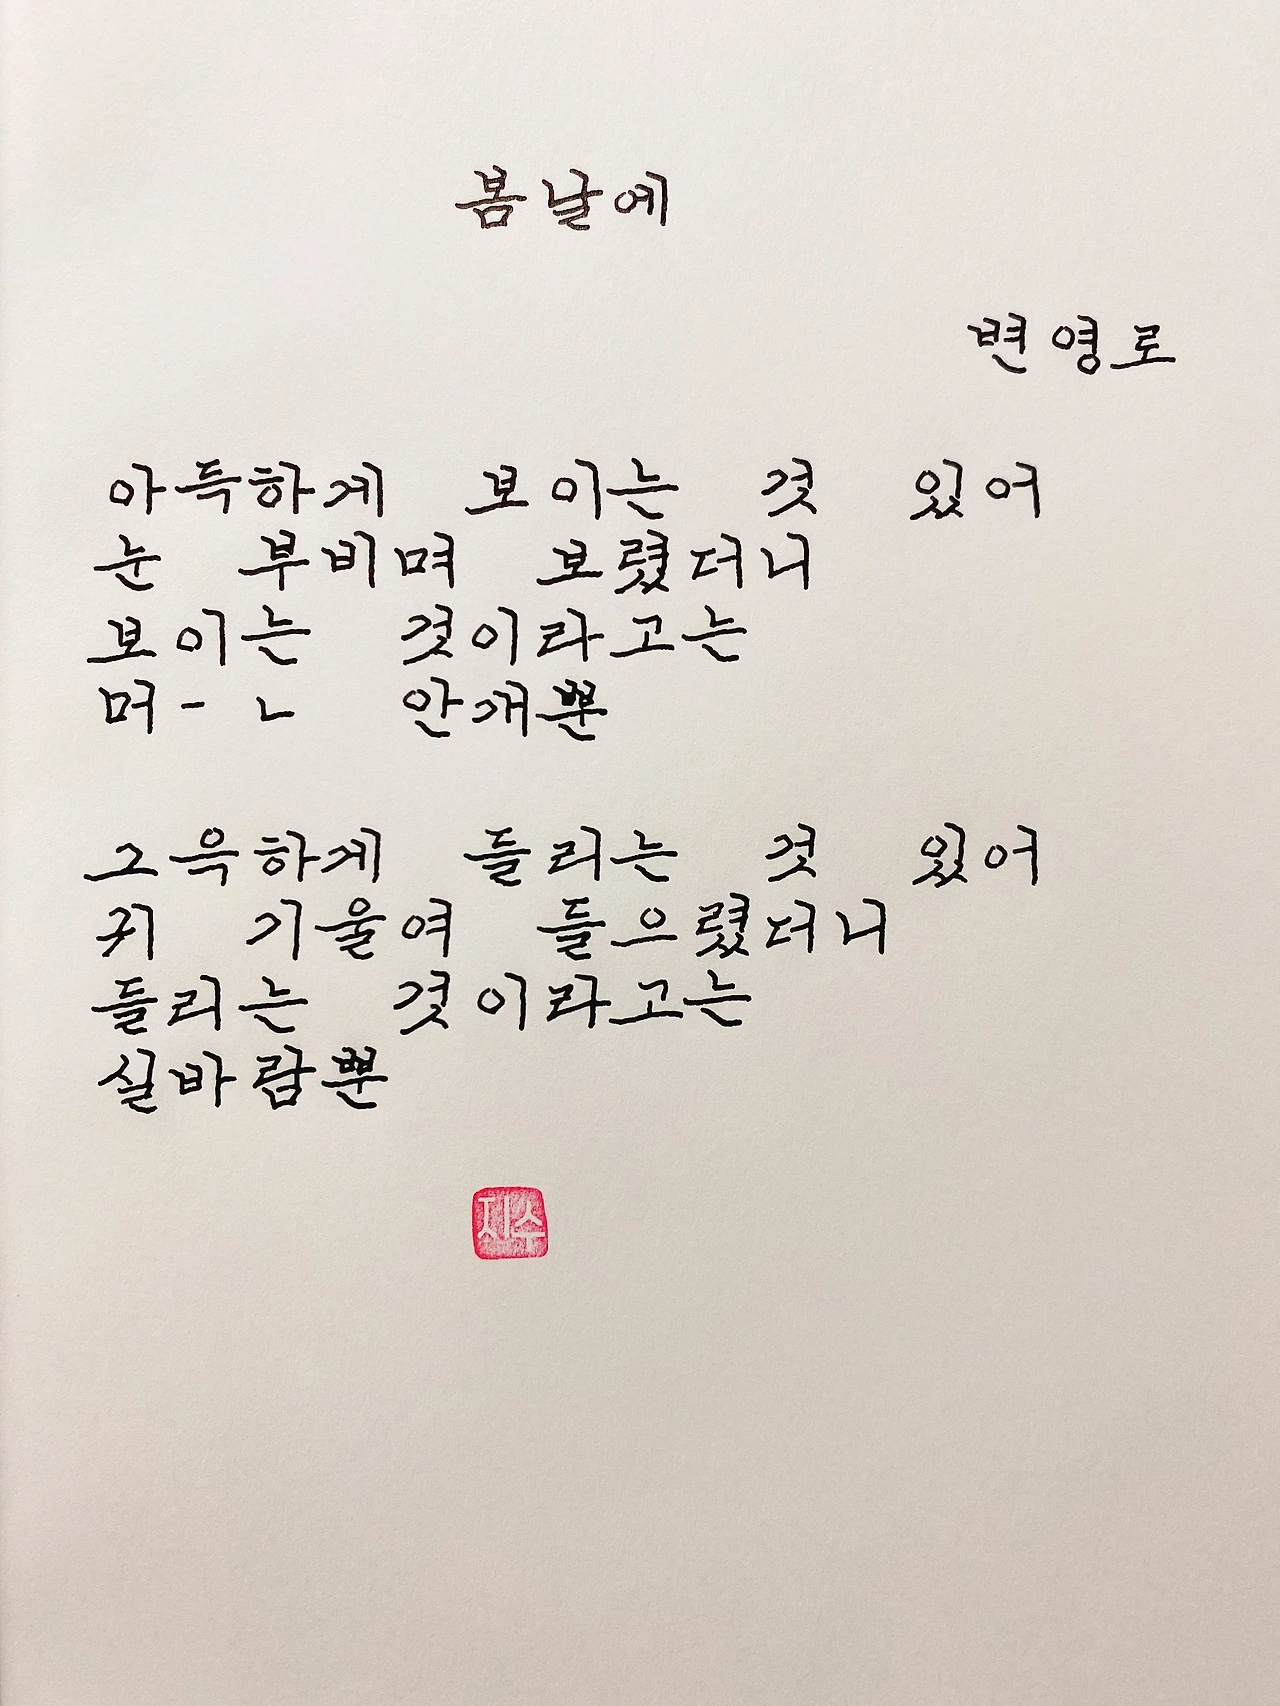 봄날에
변영로
아득하게 보이는 것 있어
눈 부비며 보렸더니
보이는 것이라고는
머- ㄴ 안개뿐
그윽하게 들리는 것 있어
귀 기울여 들으렸더니
들리는 것이라고는
실바람뿐
지수